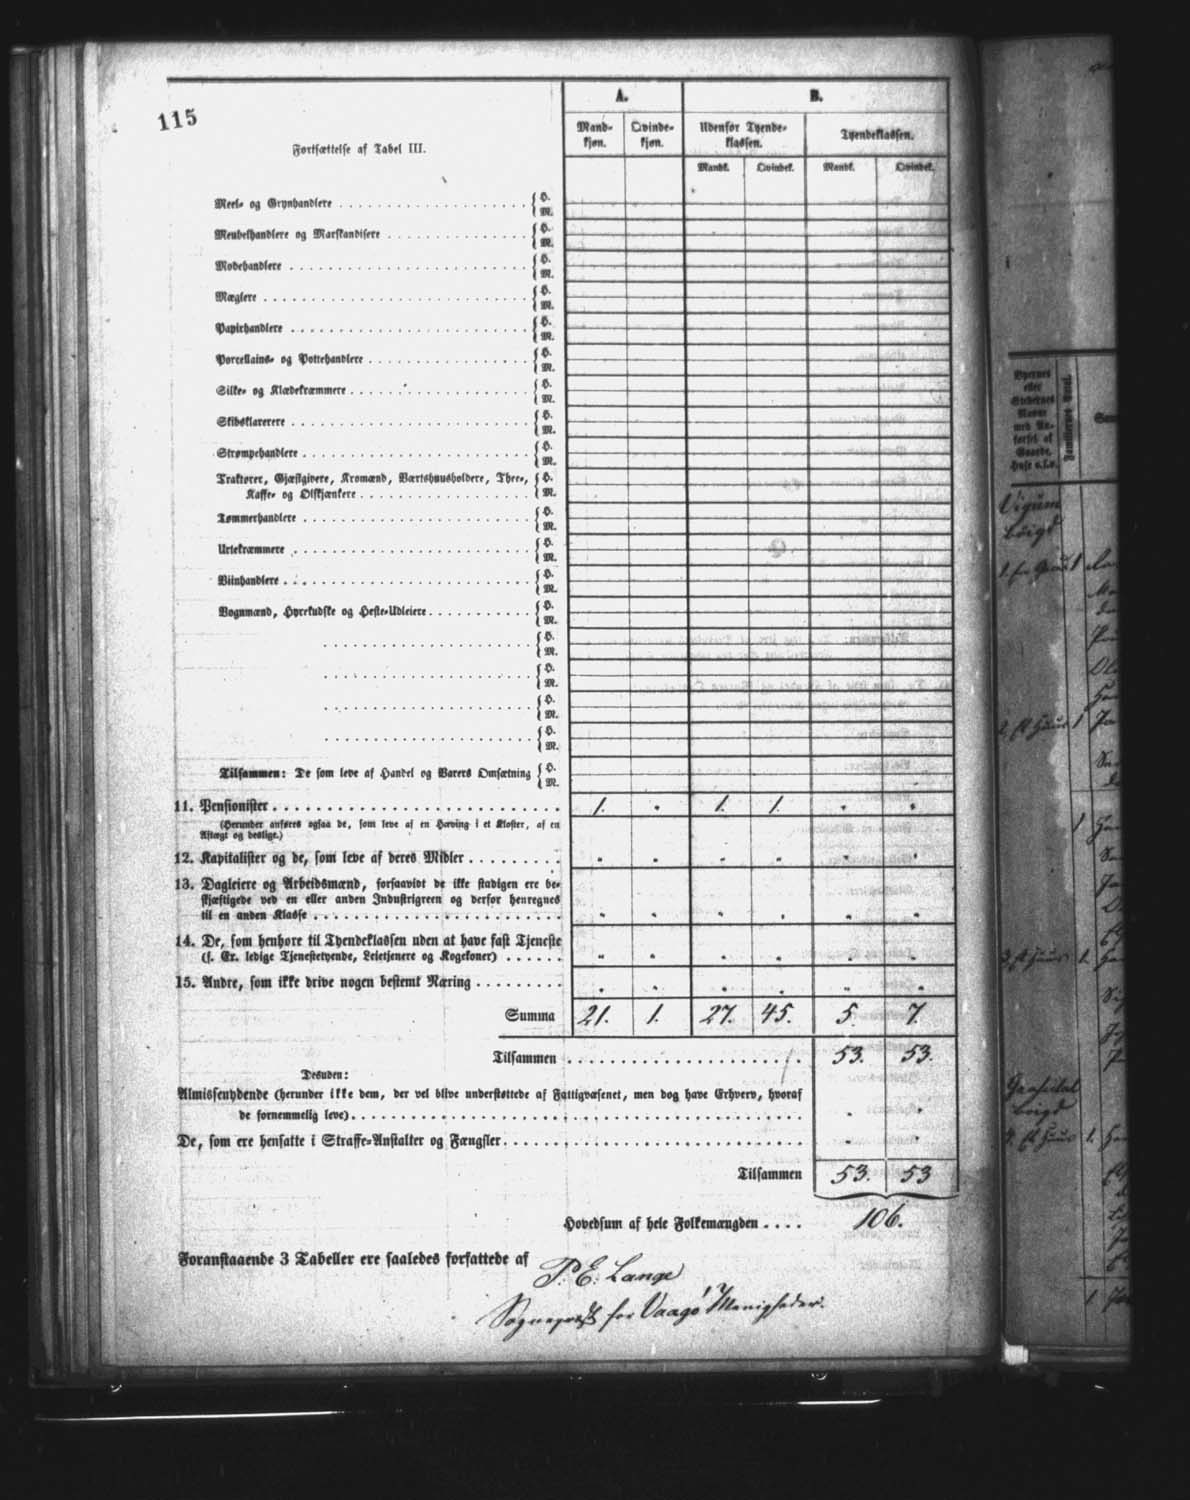 115
Fortsættelse af Tabel III.
A. B.
Mand- kjøn. Qvinde- kjøn. Udenfor Tyende- klassen. Tyendeklassen.
Mandk. Qvindek. Mandk. Qvindek.
Meel- og Grynhandlere { H. M.
Meubelhandlere og Marskandisere { H. M.
Modehandlere { H. M.
Mæglere { H. M.
Papirhandlere { H. M.
Porcellains- og Pottehandlere { H. M.
Silke- og Klædekræmmere { H. M.
Skibsklarerere { H. M.
Strømpehandlere { H. M.
Traktører, Gjæstgivere, Kromænd, Værtshuusholdere, Thee-, { H.
Kaffe- og Ølskjænkere { M.
Tømmerhandlere { H. M.
Urtekræmmere { H. M.
Viinhandlere { H. M.
Vognmænd, Hyrekudske og Heste-Udleiere { H. M.
{ H. M.
{ H. M.
{ H. M.
{ H. M.
Tilsammen: De som leve af Handel og Varers Omsætning { H. M.
11. Pensionister 1. " 1. 1. " "
(Herunder anføres ogsaa de, som leve af en Hæving i et Kloster, af en
Aftægt og deslige.)
12. Kapitalister og de, som leve af deres Midler " " " " " "
13. Dagleiere og Arbeidsmænd, forsaavidt de ikke stadigen ere be-
skjæftigede ved en eller anden Industrigreen og derfor henregnes
til en anden Klasse " " " " " "
14. De, som henhøre til Tyendeklassen uden at have fast Tjeneste
(f. Ex. ledige Tjenestetyende, Leietjenere og Kogekoner) " " " " " "
15. Andre, som ikke drive nogen bestemt Næring " " " " " "
Summa 21. 1. 27. 45. 5. 7.
Tilsammen 53. 53.
Desuden:
Almissenydende (herunder ikke dem, der vel blive understøttede af Fattigvæsenet, men dog have Erhverv, hvoraf
de fornemmelig leve) " "
De, som ere hensatte i Straffe-Anstalter og Fængsler " "
Tilsammen 53. 53
Hovedsum af hele Folkemængden 106.
Foranstaaende 3 Tabeller ere saaledes forfattede af
P. E. Lange
Sognepræst for Vaagø Menigheder.
Byernes
eller
Stedernes
Navne
med An-
førsel af
Gaarde,
Huse o.s.v.
Familiernes Antal.